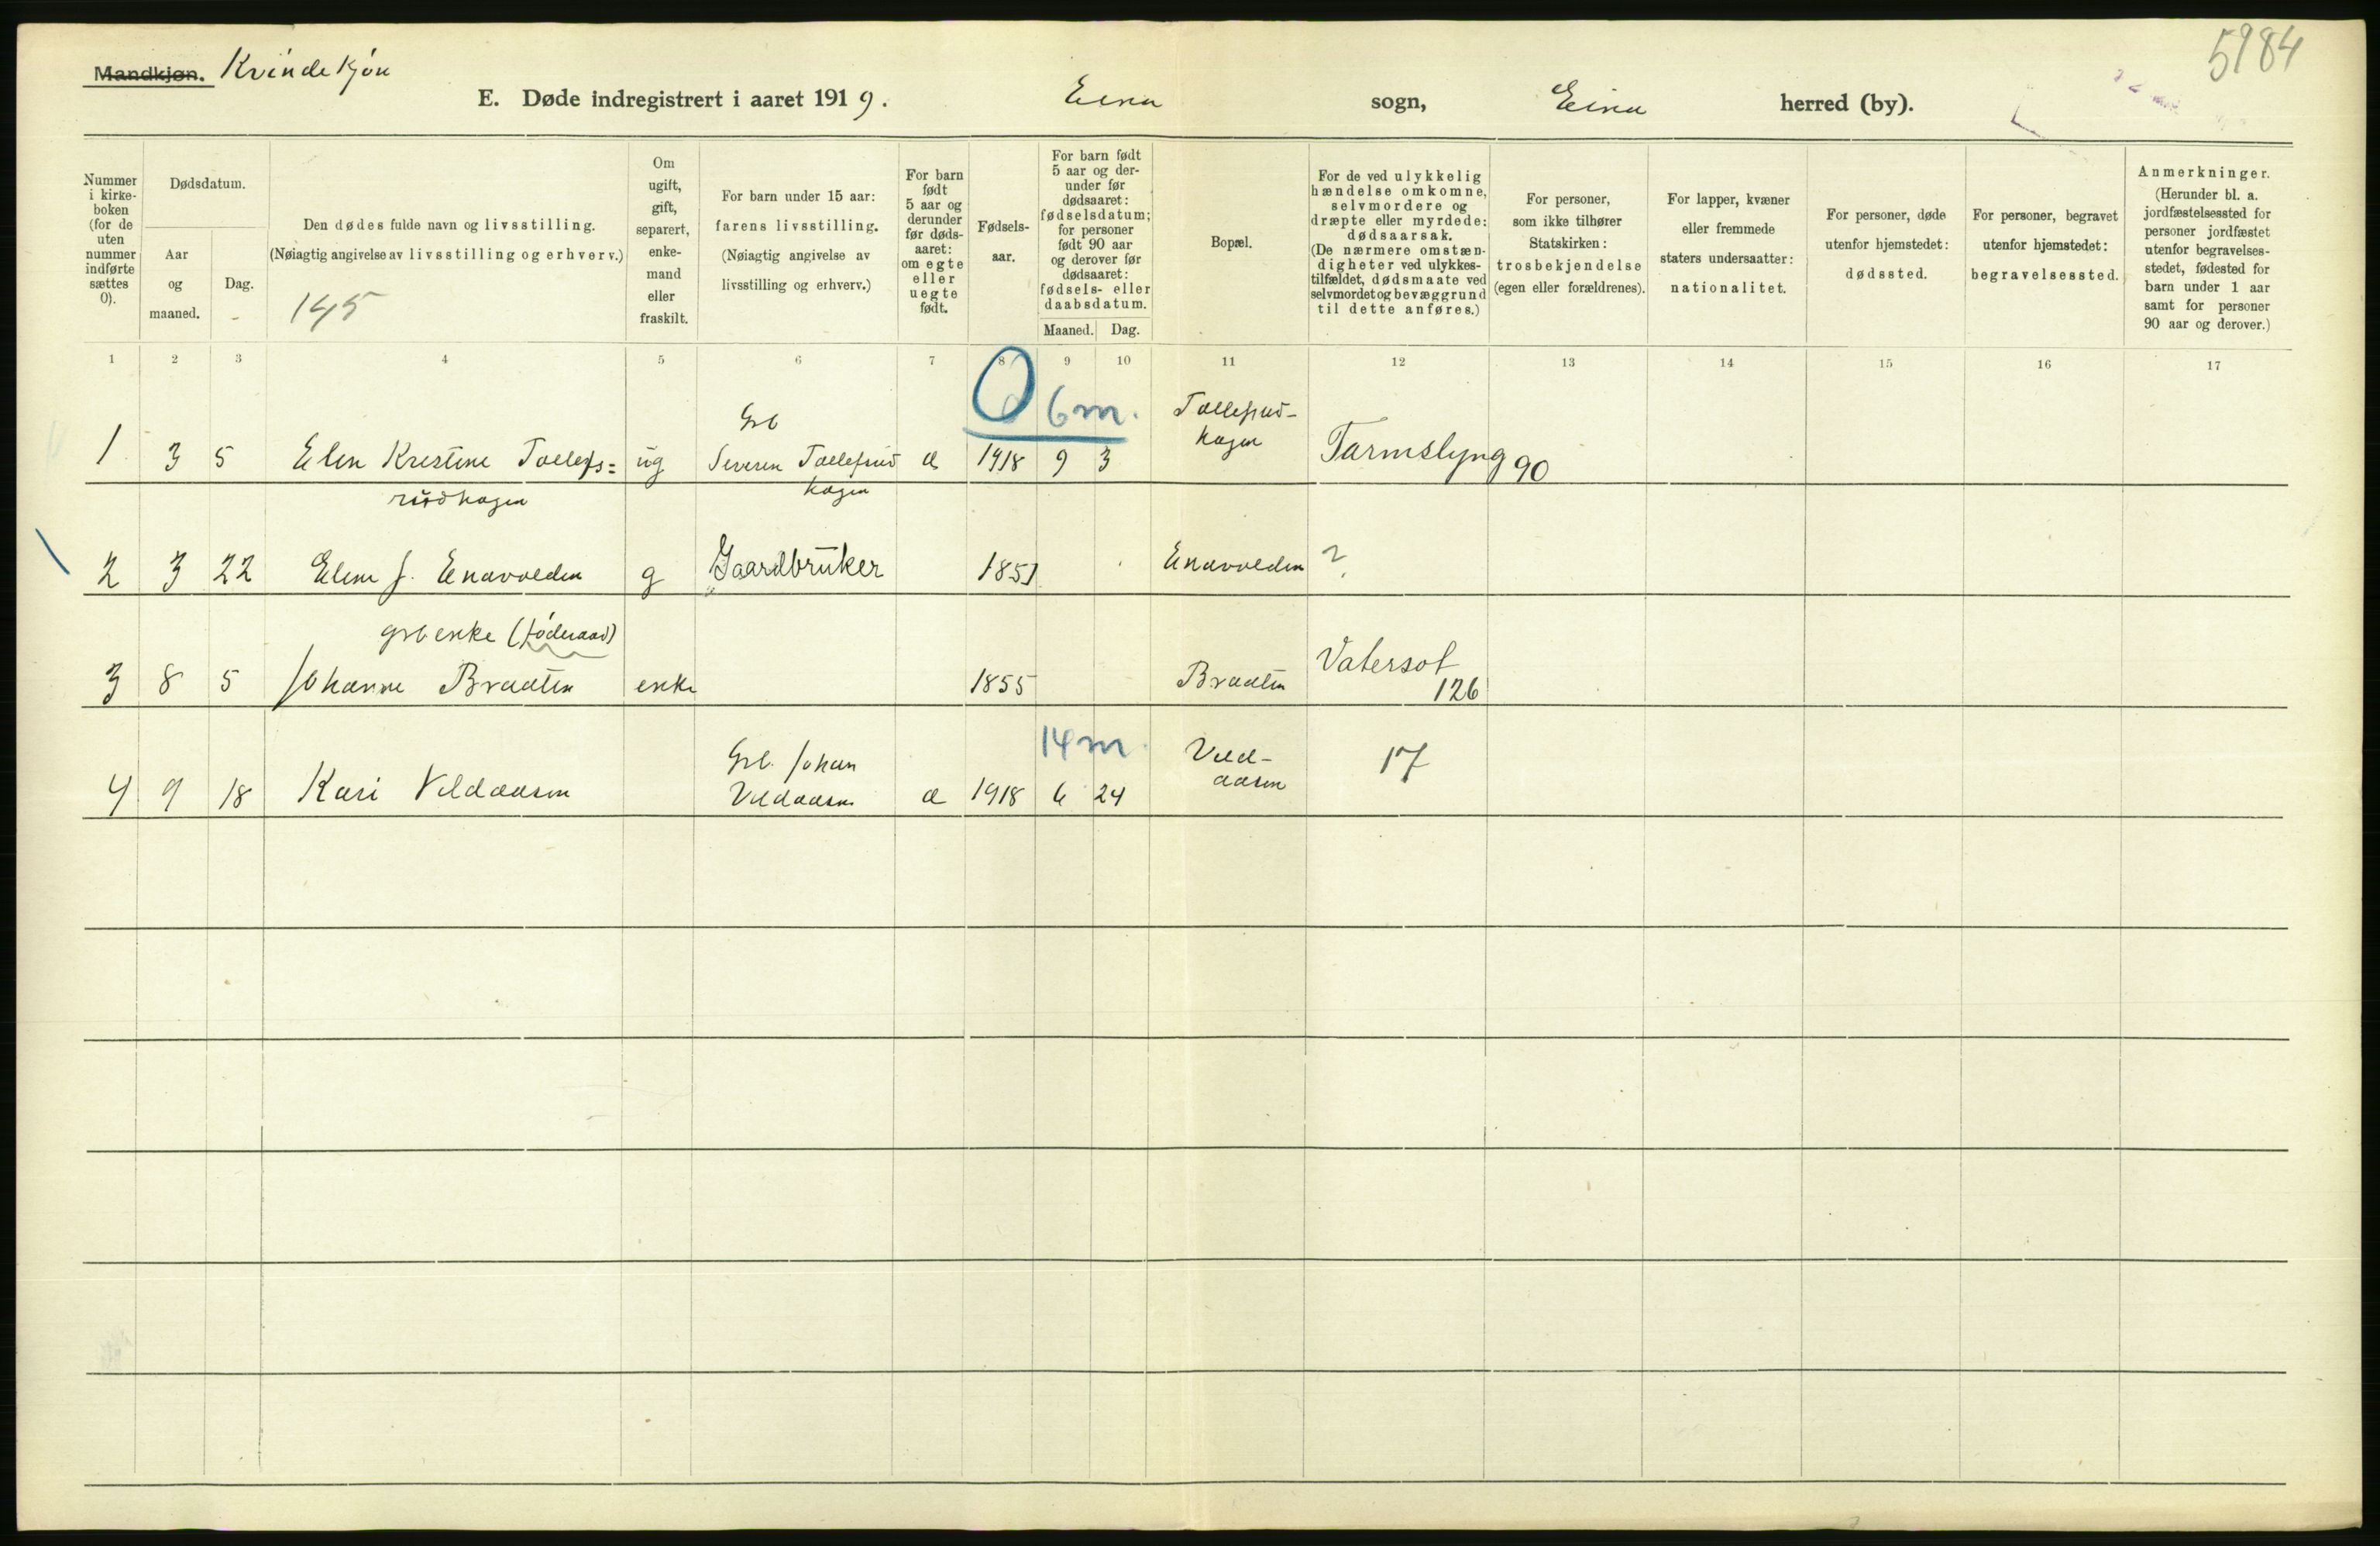 Mandkjøn. Kvindekjøn
5984
E. Døde indregistrert i aaret 1919. Eina sogn, Eina herred (by).
Nummer i kirkeboken (for de uten nummer indførte sættes 0).
Dødsdatum.
Aar og maaned.
Dag.
Den dødes fulde navn og livsstilling.
(Nøiagtig angivelse av livsstilling og erhverv.)
145
Om ugift, gift, separert, enkemand eller fraskilt.
For barn under 15 aar:
farens livsstilling.
(Nøiagtig angivelse av livsstilling og erhverv.)
For barn født 5 aar og derunder før dødsaaret: om egte eller uegte født.
Fødselsaar.
For barn født 5 aar og derunder før dødsaaret: fødselsdatum; for personer født 90 aar og derover før dødsaaret: fødsels- eller daabsdatum.
Maaned. Dag.
Bopæl.
For de ved ulykkelig hændelse omkomne, selvmordere og dræpte eller myrdede: dødsaarsak.
(De nærmere omstændigheter ved ulykkestilfældet, dødsmaate ved selvmordet og bevæggrund til dette anføres.)
For personer, som ikke tilhører Statskirken: trosbekjendelse (egen eller forældrenes).
For lapper, kvæner eller fremmede staters undersaatter: nationalitet.
For personer, døde utenfor hjemstedet: dødssted.
For personer, begravet utenfor hjemstedet: begravelsessted.
Anmerkninger.
(Herunder bl. a. jordfæstelsessted for personer jordfæstet utenfor begravelsesstedet, fødested for barn under 1 aar samt for personer 90 aar og derover.)
1 2 3 4 5 6 7 8 9 10 11 12 13 14 15 16 17
0 6 m.
Grb Tollefsrud-
1 3 5 Elen Kristine Tollefs= ug Severin Tollefsrud æ 1918 9 3 hagen Tarmslyng 90
rudhagen hagen
2 3 22 Eline J. Enavolden g Gaardbruker 1851 Enavolden ?
grb enke (føderaad)
3 8 5 Johanne Braaten enke 1855 Braaten Vatersot
126
14 m
Grb. Johan Vild-
4 9 18 Kari Vildaasen Vildaasen æ 1918 6 24 aasen 17